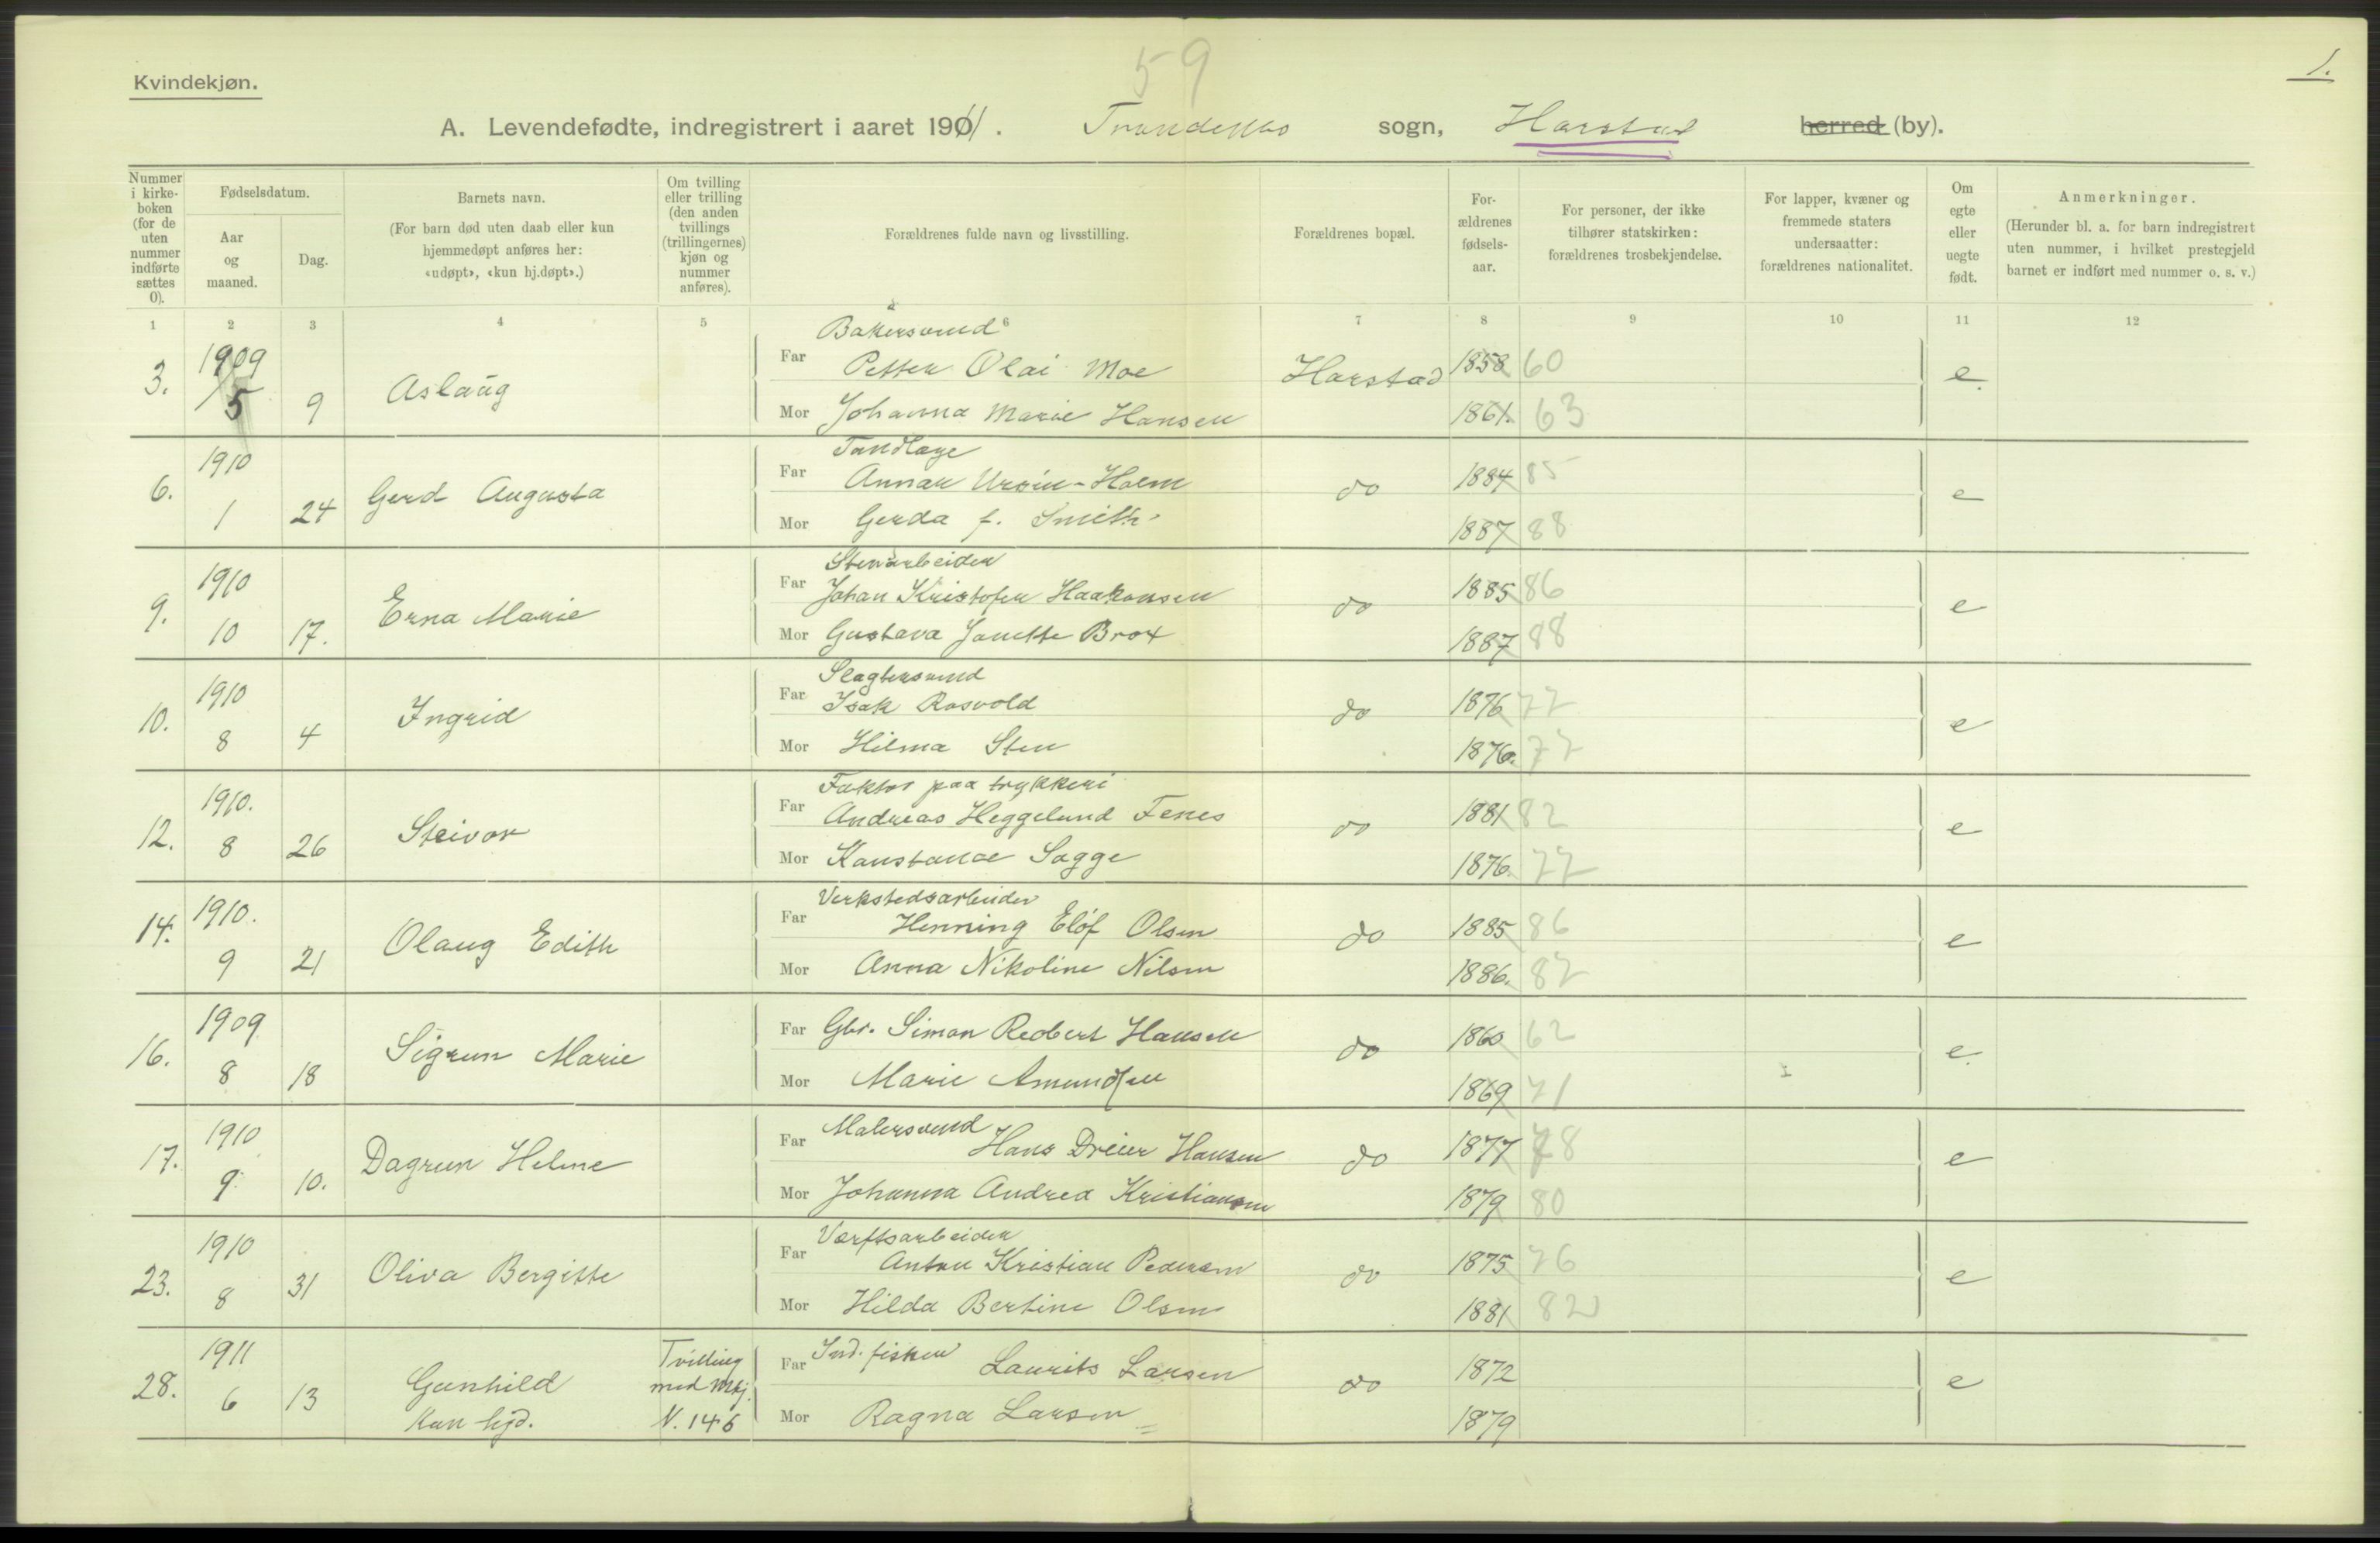 59
1.
Kvindekjøn.
A. Levendefødte, indregistrert i aaret 1911. Trondenes sogn, Harstad herred (by).
Nummer i kirkeboken (for de uten nummer indførte sættes 0).
Fødselsdatum.
Aar og maaned.
Dag.
Barnets navn.
(For barn død uten daab eller kun hjemmedøpt anføres her: «udøpt», «kun hj.døpt».)
Om tvilling eller trilling (den anden tvillings (trillingernes) kjøn og nummer anføres).
Forældrenes fulde navn og livsstilling.
Forældrenes bopæl.
For-ældrenes fødsels-aar.
For personer, der ikke tilhører statskirken: forældrenes trosbekjendelse.
For lapper, kvæner og fremmede staters undersaatter: forældrenes nationalitet.
Om egte eller uegte født.
Anmerkninger.
(Herunder bl. a. for barn indregistrert uten nummer, i hvilket prestegjeld barnet er indført med nummer o. s. v.)
1 2 3 4 5 6 7 8 9 10 11 12
Bakersvend
3. 1909 5 9 Aslaug Far Petter Olai Moe Harstad 1858 60 e.
Mor Johanna Marie Hansen 1861. 63
Tandlæge
6. 1910 1 24 Gerd Augusta Far Annar Ursin-Holm do 1884 85 e
Mor Gerda f. Smith 1887 88
Stenarbeider
9. 1910 10 17. Erna Marie Far Johan Kristofer Haakonsen do 1885 86 e
Mor Gustava Janette Brox 1887 88
Slagtersvend
10. 1910 8 4 Ingrid Far Isak Rosvold do 1876 77 e
Mor Hilma Sten 1876. 77
Faktor paa trykkeri
12. 1910. 8 26 Steivor Far Andreas Heggelund Fenes do 1881 82 e
Mor Konstance Sagge 1876. 77
Verkstedsarbeider
14. 1910. 9 21 Olaug Edith Far Henning Elof Olsen do 1885 86 e
Mor Anna Nikoline Nilsen 1886. 87
16. 1909 8 18 Sigrun Marie Far Gbr. Simon Redbert Hansen do 1860 62 e.
Mor Marie Amundsen 1869 71
Malersvend
17. 1910 9. 10. Dagrun Helene Far Hans Dreier Hansen do 1877 78 e
Mor Johanna Andrea Kristiansen 1879 80
Værftsarbeider
23. 1910 8 31 Oliva Bergitte Far Anton Kristian Pedersen do 1875 76 e
Mor Hilda Bertine Olsen 1881 82
28. 1911 6 13 Gunhild Kun hjd. Tvilling med Mkj. N. 146 Far Ind. fisker Laurits Larsen do 1872 e
Mor Ragna Larsen 1879